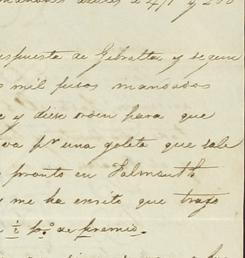 respuesta de Gibraltar y segun
mil pesos mandados
y dise orden para que
pr una goleta que sale
pronto en Falmouth
y me ha escrito que trajo
½ po de premio.